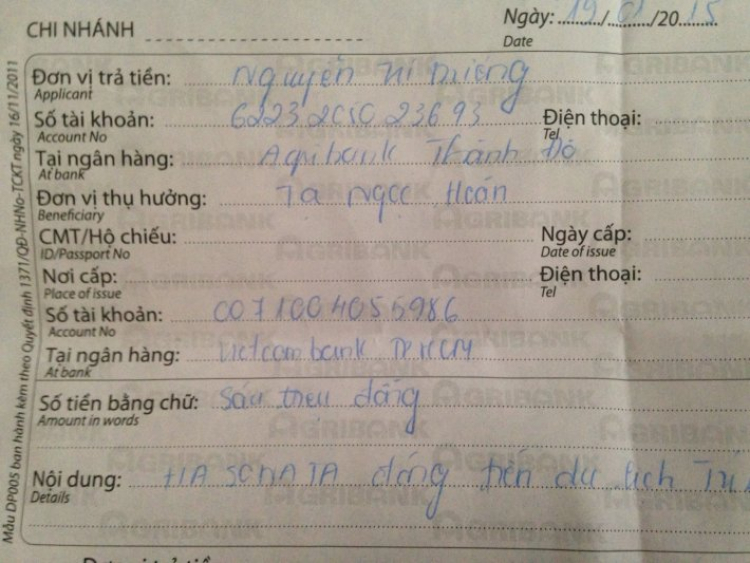 CHI NHÁNH
Ngày: 19/01/2015
Date
Đơn vị trả tiền: Nguyễn
Applicant
Số tài khoản: Điện thoại:
Account No Tel
Tại ngân hàng: Agribank Thành Đô
At bank
Đơn vị thụ hưởng: Tạ Ngọc Hoán
Beneficiary
CMT/Hộ chiếu: Ngày cấp:
ID/Passport No Date of issue
Nơi cấp: Điện thoại:
Place of issue Tel
Số tài khoản: 0071004055986
Account No
Tại ngân hàng: Vietcombank TP HCM
At bank
Số tiền bằng chữ: Sáu triệu đồng
Amount in words
Nội dung: HA SONATA đóng tiền du lịch
Details
Mẫu DP005 ban hành kèm theo Quyết định 1371/QĐ-NHNo-TCKT ngày 16/11/2011
AGRIBANK